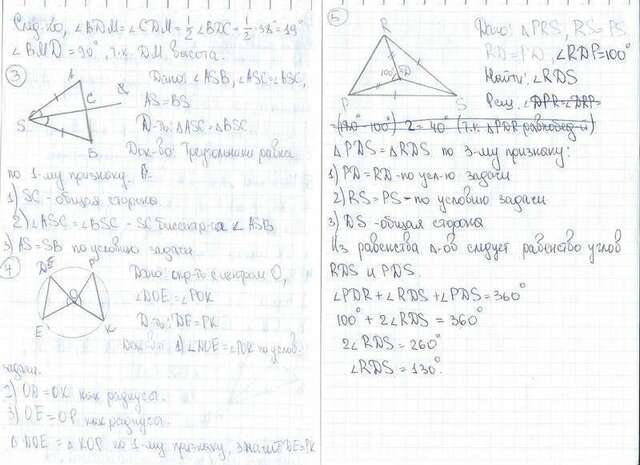 След-но, ∠BDM = ∠CDM = 1/2 ∠BDC = 1/2 · 38° = 19°
∠BMD = 90°, т.к. DM высота.
③
Дано: ∠ASB, ∠ASC = ∠BSC,
AS = BS
Д-ть: △ASC = △BSC.
Док-во: Треугольники равны
по 1-му признаку.
1) SC - общая сторона.
2) ∠ASC = ∠BSC - SC биссектр-са ∠ASB
3) AS = SB по условию задачи.
A
C
S
B
④
Дано: окр-ть с центром O,
∠DOE = ∠POK
Д-ть: DE = PK
Док-во: 1) ∠DOE = ∠POK по услов.
задачи.
2) OD = OK как радиусы.
3) OE = OP как радиусы.
△DOE = △KOP по 1-му признаку, значит DE = PK
D
P
O
E
K
⑤
Дано: △PRS, RS = PS.
RD = PD, ∠RDP = 100°
Найти: ∠RDS
Реш. ∠DPR = ∠DRP =
= (180° - 100°) : 2 = 40° (т.к. △PDR равнобед-й)
R
100°
D
P
S
△PDS = △RDS по 3-му признаку:
1) PD = RD - по усл-ю задачи
2) RS = PS - по условию задачи
3) DS - общая сторона
Из равенства △-ов следует равенство углов
RDS и PDS.
∠PDR + ∠RDS + ∠PDS = 360°
100° + 2∠RDS = 360°
2∠RDS = 260°
∠RDS = 130°.